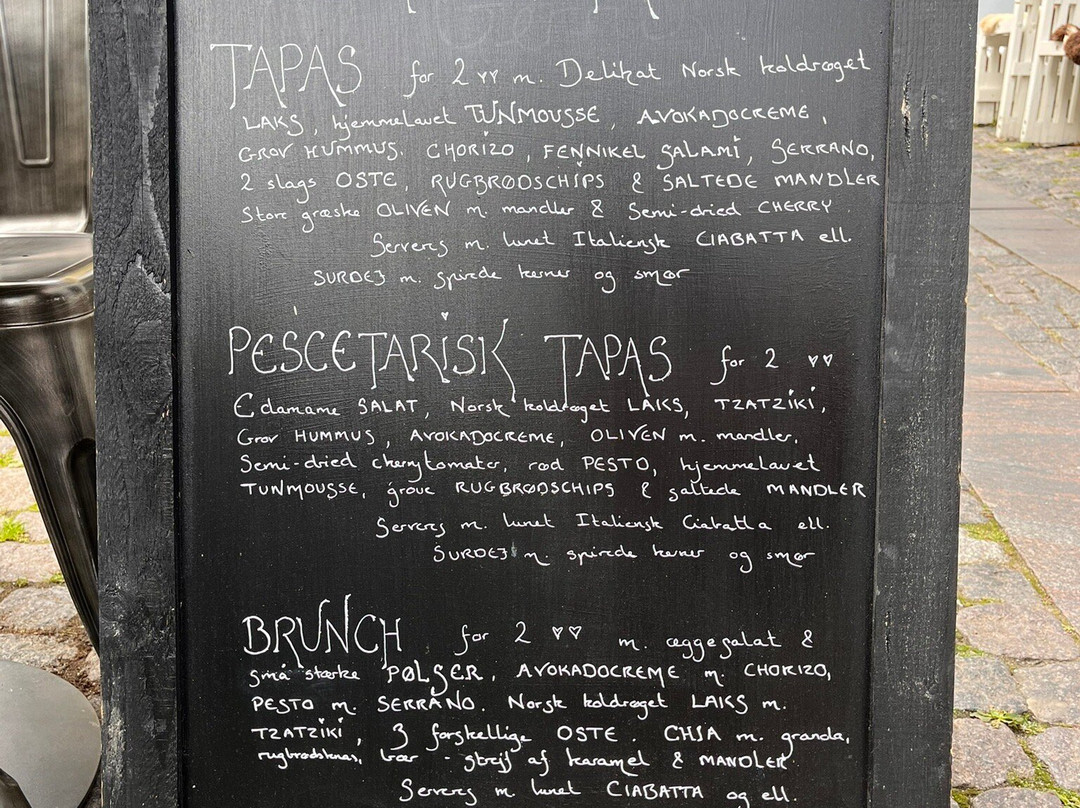 TAPAS for 2 ♥♥ m. Delikat Norsk koldrøget
LAKS, hjemmelavet TUNMOUSSE, AVOKADOCREME,
GROV HUMMUS. CHORIZO, FENNIKEL SALAMI, SERRANO,
2 slags OSTE, RUGBRØDSCHIPS & SALTEDE MANDLER
Store græske OLIVEN m. mandler & Semi-dried CHERRY.
Serveres m. lunet Italiensk CIABATTA ell.
SURDEJ m. spirede kerner og smør
PESCETARISK TAPAS for 2 ♥♥
Edamame SALAT, Norsk koldrøget LAKS, TZATZIKI,
Grov HUMMUS, AVOKADOCREME, OLIVEN m. mandler,
Semi-dried cherrytomater, rød PESTO, hjemmelavet
TUNMOUSSE, grove RUGBRØDSCHIPS & saltede MANDLER
Serveres m. lunet Italiensk Ciabatta ell.
SURDEJ m. spirede kerner og smør
BRUNCH for 2 ♥♥ m. æggesalat &
små stærke PØLSER, AVOKADOCREME m. CHORIZO,
PESTO m. SERRANO. Norsk koldrøget LAKS m.
TZATZIKI, 3 forskellige OSTE. CHIA m. granola,
rugbrødsknas, bær - strejf af karamel & MANDLER
Serveres m. lunet CIABATTA og ell.